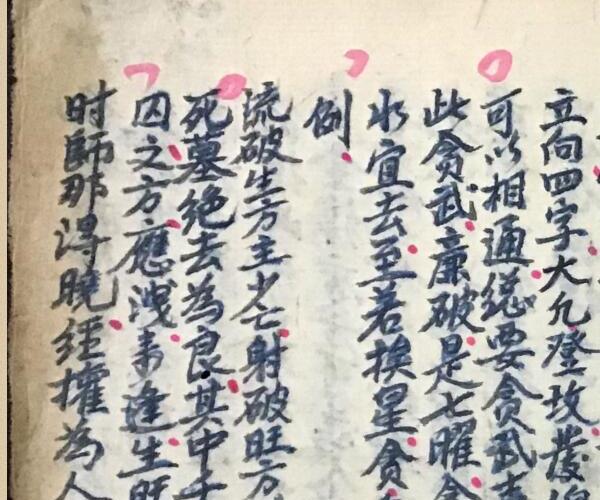 立向四字大凢登坟
可以相通总要贪武
此贪武廉破是七曜
水宜去至若挨星贪
例
流破生方主少亡射破旺方
死墓絶去為良其中
囚之方應洩未逢生旺
时師那得曉經權為人